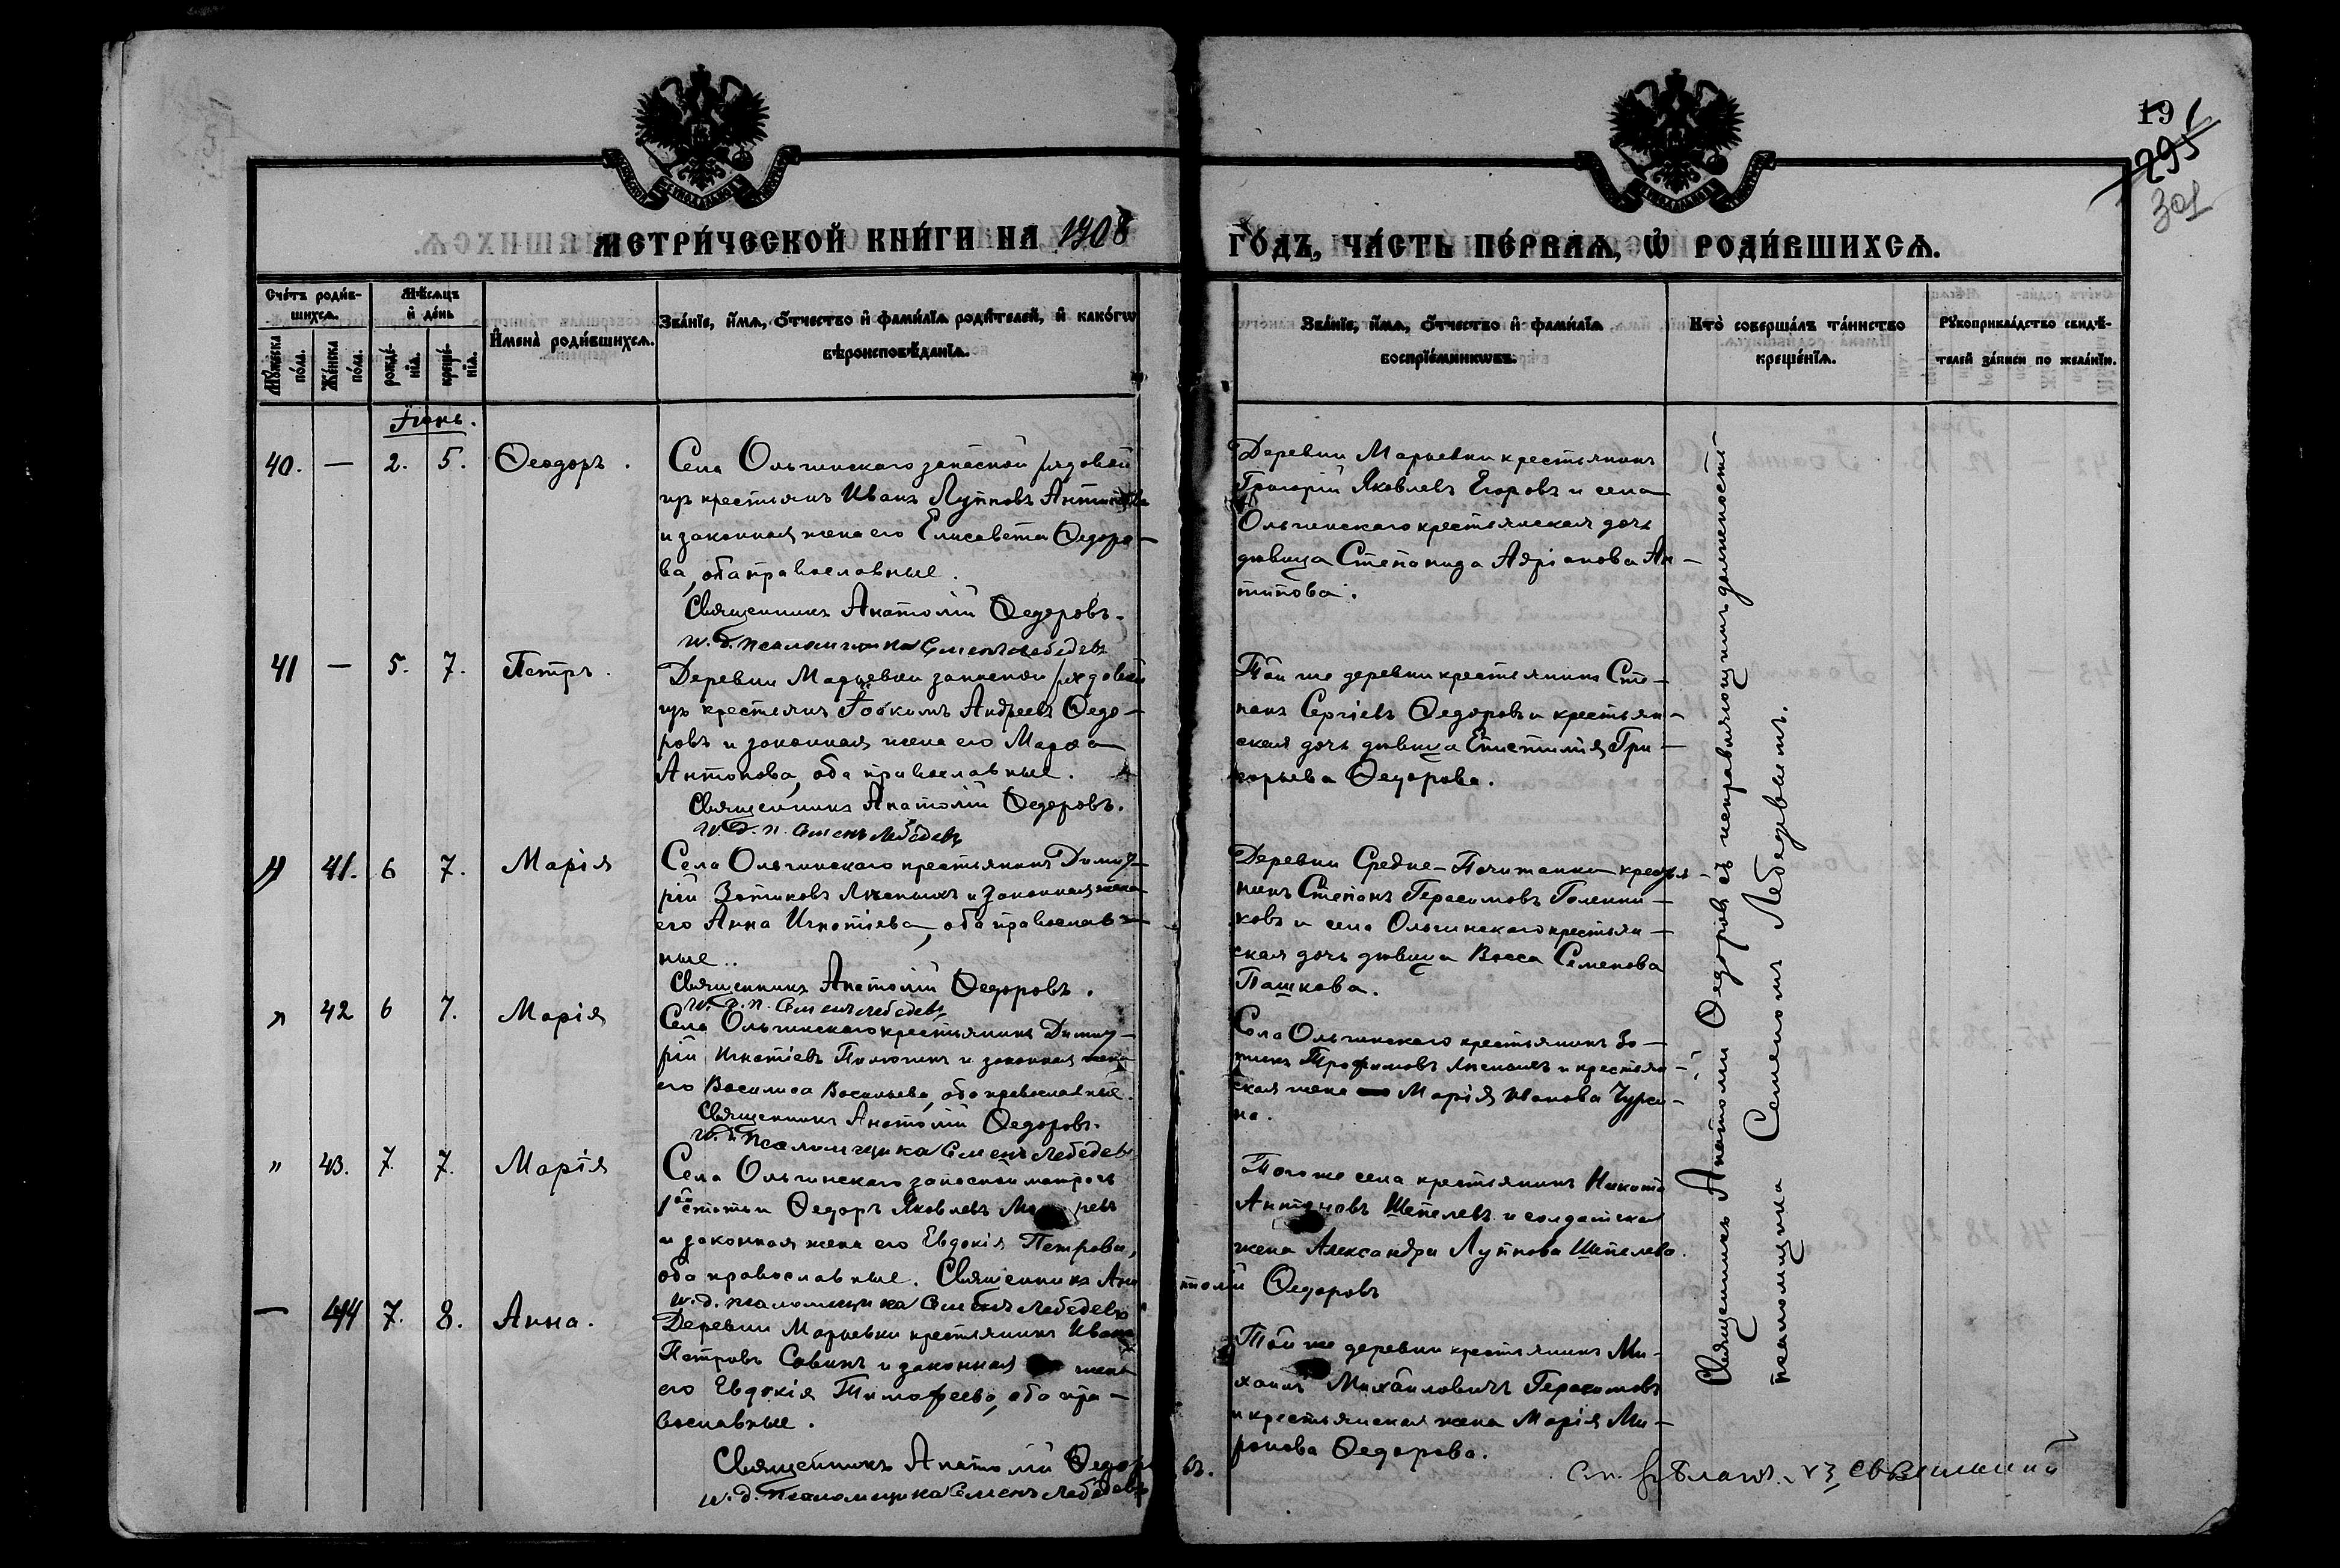 19
295
301
МЕТРИ́ЧЕСКОЙ КНИ́ГИ НА 1908
ГО́ДЪ, ЧА́СТЬ ПЕ́РВАѦ, Ѡ РОДИ́ВШИХСѦ.
Сче́тъ роди́в-
шихсѧ.
Мѣ́сѧцъ
и҆ де́нь
Мꙋ́жеска по́ла.
Же́нска по́ла.
рожде́-
нїѧ.
креще́-
нїѧ.
И҆мена̀ роди́вшихсѧ.
Зва́нїе, и҆́мѧ, ѻ҆́тчество и҆ фами́лїѧ роди́телей, и҆ како́гѡ
вѣроисповѣ́данїѧ.
Зва́нїе, и҆́мѧ, ѻ҆́тчество и҆ фами́лїѧ
воспрїе́мникѡвъ.
Кто̀ соверша́лъ та́инство
креще́нїѧ.
Рꙋкоприкла́дство свидѣ́-
телей за́писи по жела́нїю.
Іюнь.
40. — 2. 5. Ѳеодоръ.
Села Ольгинскаго запасной рядовой
изъ крестьянъ Иванъ Лупповъ
и законная жена его Елисавета Ѳедоро-
ва, оба православные.
Священникъ Анатолій Ѳедоровъ.
и. д. псаломщика Семенъ Лебедевъ
Деревни Марьевки крестьянинъ
Григорій Яковлевъ Егоровъ и села
Ольгинскаго крестьянская дочь
дѣвица Степанида Адріанова Ан-
типова.
41 — 5. 7. Петръ.
Деревни Марьевки запасной рядовой
изъ крестьянъ Іоакимъ Андреевъ Ѳедо-
ровъ и законная жена его Марѳа
Антонова, оба православные.
Священникъ Анатолій Ѳедоровъ.
и. д. п. Семенъ Лебедевъ
Той же деревни крестьянинъ Сте-
панъ Сергіевъ Ѳедоровъ и крестьян-
ская дочь дѣвица Епистимія Гри-
горьева Ѳедорова.
" 41. 6 7. Марія
Села Ольгинскаго крестьянинъ Димит-
рій Зотиковъ и законная жена
его Анна Игнатіева, оба православ-
ные.
Священникъ Анатолій Ѳедоровъ.
и. д. п. Семенъ Лебедевъ
Деревни Средне-Почитанки крестья-
нинъ Степанъ Герасимовъ Голенни-
ковъ и села Ольгинскаго крестьян-
ская дочь дѣвица Васса Семенова
Пашкова.
" 42 6 7. Марія
Села Ольгинскаго крестьянинъ Димит-
рій Игнатіевъ Пилюгинъ и законная жена
его Василиса Васильева, оба православные.
Священникъ Анатолій Ѳедоровъ.
и. д. псаломщика Семенъ Лебедевъ
Села Ольгинскаго крестьянинъ Зо-
тикъ Трофимовъ и крестьян-
ская жена Марія Иванова Чурси-
на.
" 43. 7. 7. Марія
Села Ольгинскаго запасной матросъ
1ой статьи Ѳедоръ Яковлевъ
и законная жена его Евдокія Петрова,
оба православные. Священникъ Ана толій Ѳедоровъ
и. д. псаломщика Семенъ Лебедевъ
Того же села крестьянинъ Никита
Антоновъ Шепелевъ и солдатская
жена Александра Луппова Шепелева.
— 44 7. 8. Анна.
Деревни Марьевки крестьянинъ Иванъ
Петровъ Савинъ и законная жена
его Евдокія Тимофеева, оба пра-
вославные.
Священникъ Анатолій Ѳедоровъ.
и. д. псаломщика Семенъ Лебедевъ
Той же деревни крестьянинъ Ми-
хаилъ Михайловичъ Герасимовъ
и крестьянская жена Марія Ми-
ронова Ѳедорова.
Священникъ Анатолій Ѳедоровъ съ исправляющимъ должность
псаломщика Семеномъ Лебедевымъ.